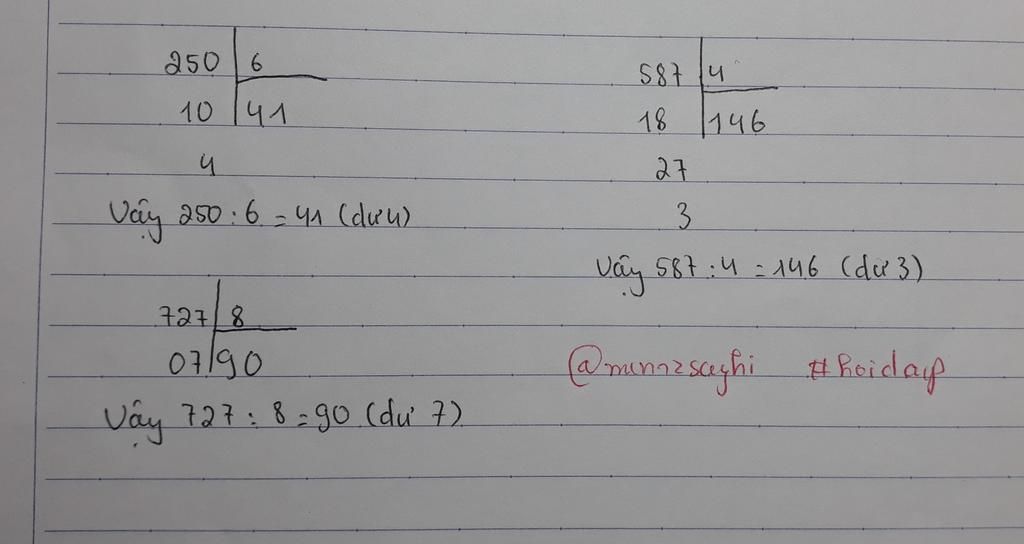 250 6
10 41
4
Vậy 250 : 6 = 41 (dư 4)
587 4
18 146
27
3
Vậy 587 : 4 = 146 (dư 3)
727 8
07 90
Vậy 727 : 8 = 90 (dư 7)
#hoidap